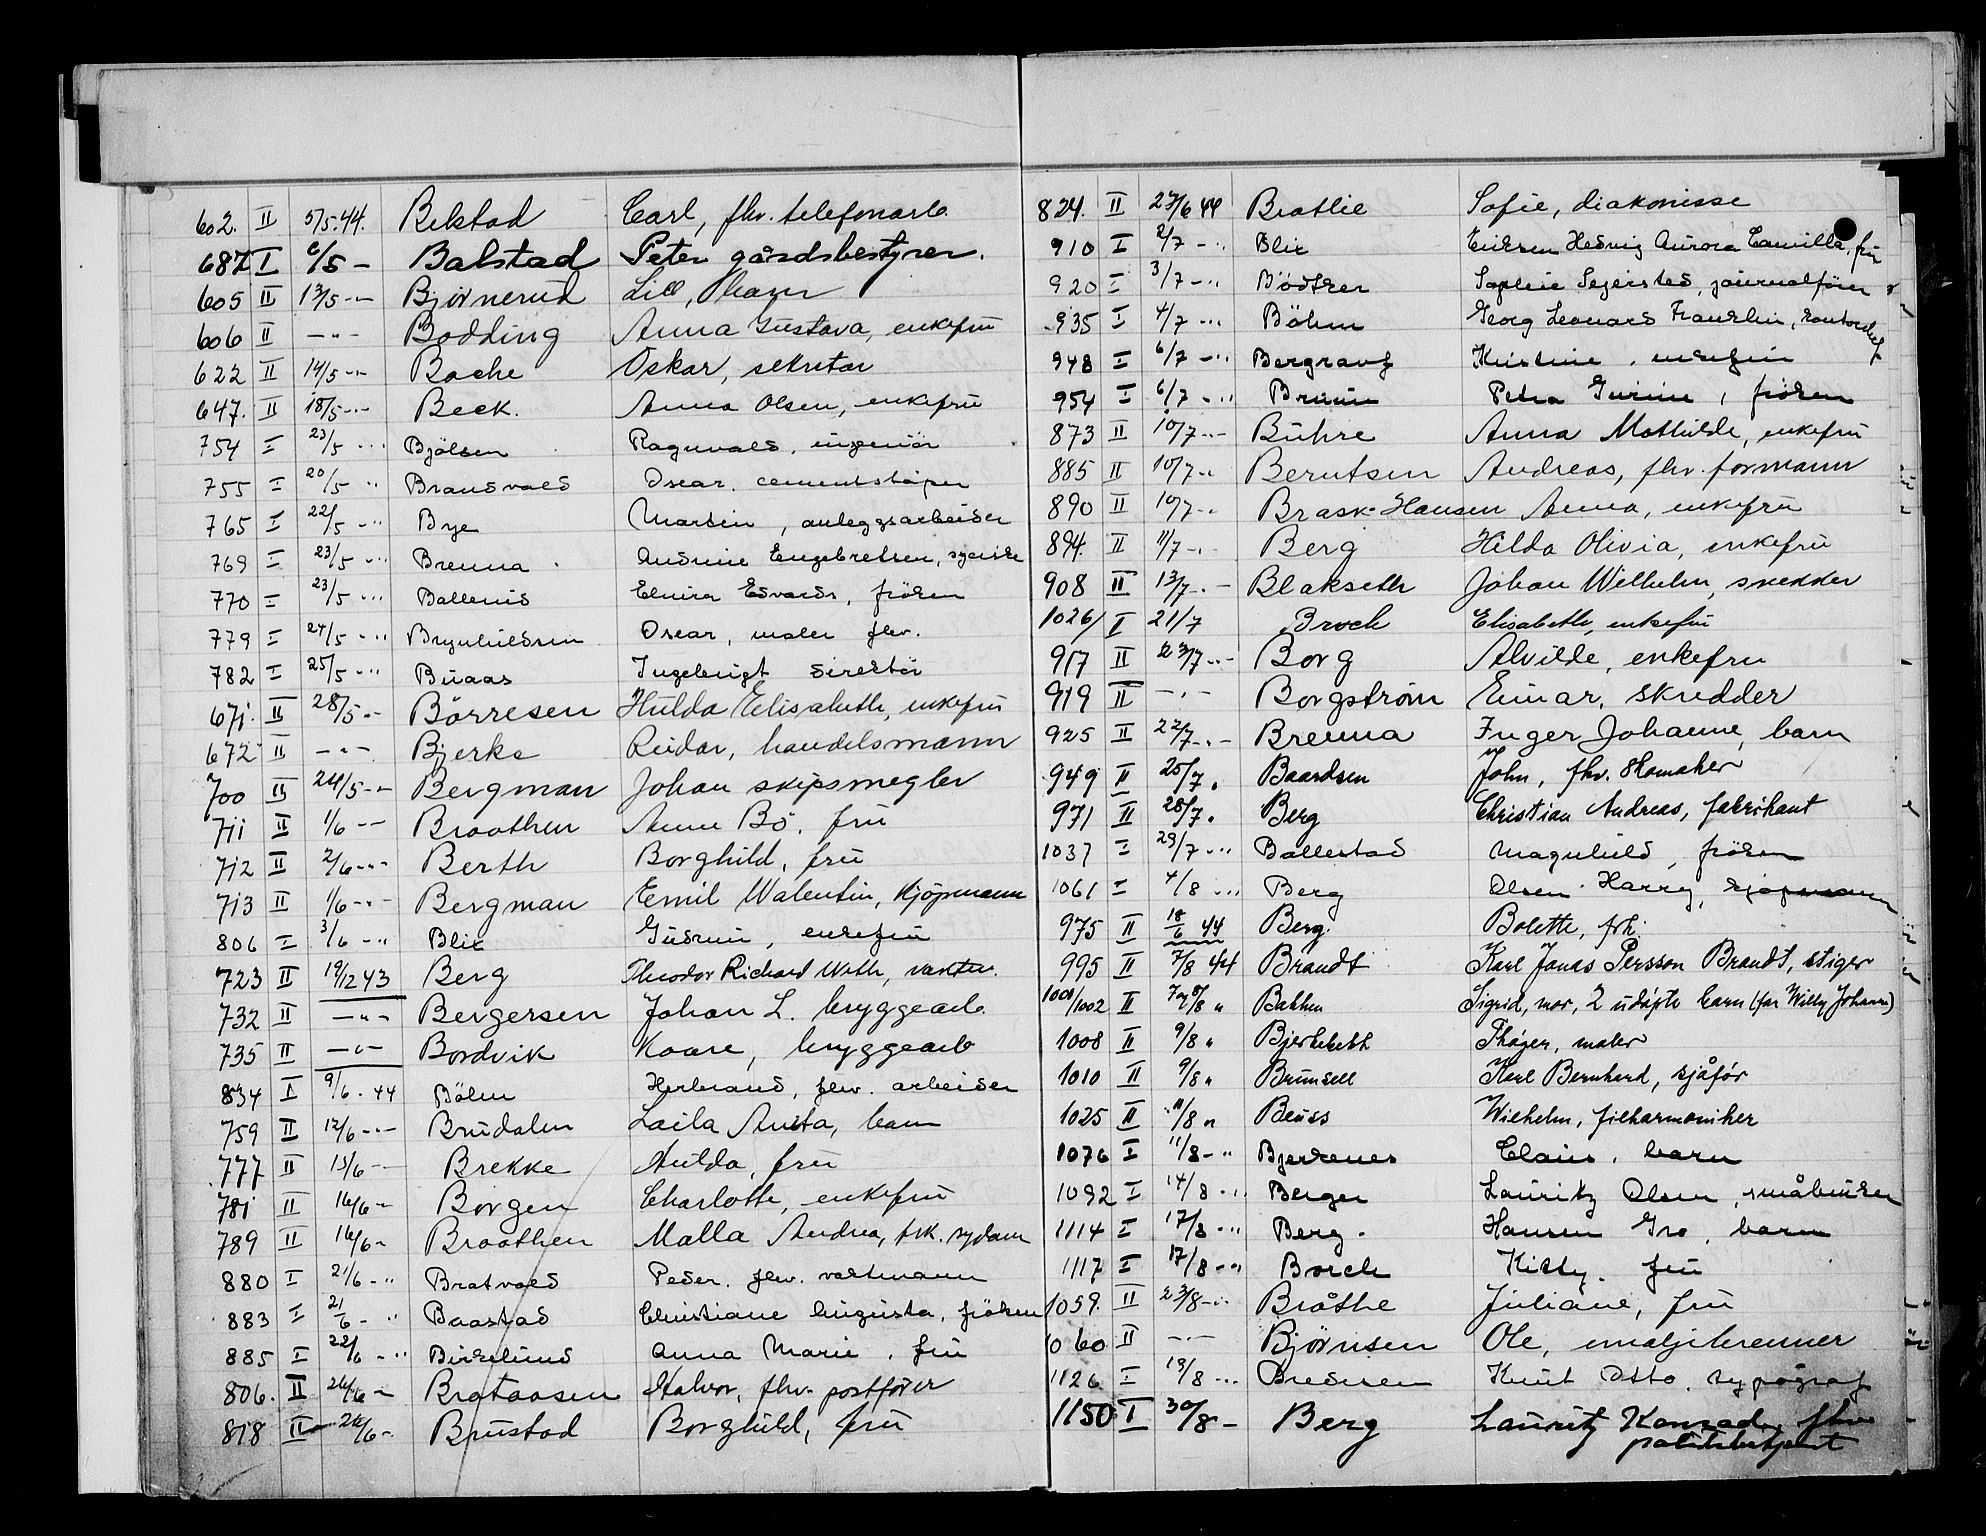 602. II 5/5.44. Belstad Carl, fhv. telefonarb.
687 I 6/5 – Balstad Peter gårdsbestyrer.
605 II 13/5 -"- Bjørnerud Lill, barn
606 II -"- Bodding Anna Gustava, enkefru
622 II 14/5 -"- Boche Oskar, sekretær
647. II 18/5 -"- Beck. Anna Olsen, enkefru
754 I 23/5 -"- Bjölsen Ragnvald, ingeniör
755 I 20/5 " Brandvold Oscar. cementstöper
765 I 22/5 -" Bye Martin, anleggsarbeider
769 I 23/5 -"- Brenna Andrine Engebretsen, syerske
770 I 23/5 -"- Ballerud Elvira Edvarda, fröken
779 I 24/5 -"- Brynhildsen Oscar, maler fhv.
782 I 25/5 -"- Buaas Ingebrigt direktör
671. II 28/5 -"- Börresen Hulda Elisabeth, enkefru
672 II -"- Bjerke Reidar, handelsmann
700 II 24/5 -"- Bergman Johan skipsmegler
711 II 1/6 -"- Braathen Anna Bö, fru
712 II 2/6 -"- Berth Borghild, fru
713 II 1/6 -"- Bergman Emil Walentin, kjöpmann
806 I 3/6 -" Blix Gudrun, enkefru
723 II 19/12 43 Berg Theodor Richard With, vaktm.
732 II -"- Bergersen Johan L. bryggearb.
735 II -"- Bordvik Kaare, bryggearb
834 I 9/6 . 44 Böhn Herbrand, fhv. arbeider
759 II 12/6 -"- Brudalen Laila Anita, barn
777 II 15/6 - Brekke Hulda, fru
781 II 16/6 - Borgen Charlotte, enkefru
789 II 16/6 - Braathen Malla Andrea, frk. sydame
880 I 21/6 -" Bratvold Peder. fhv. vaktmann
883 I 21/6 -" Baastad Christiane Augusta, fröken
885 I 22/6 -" Birkelund Anna Marie, fru
806. II 26/6 - Brataasen Halvor, fhv. postfører
818 II 26/6 - Brustad Borghild, fru
824. II 27/6 44 Bratlie Sofie, diakonisse
910 I 2/7 -" Blix Eriksen Hedvig Aurora Camilla, fru
920 I 3/7 -" Bödtker Sophie Segersted, journalförer
935 I 4/7 -" Böhm Georg Leonard Franklin, kontorchef
948 I 6/7 -" Bergravf Kristine, enkefru
954 I 6/7 -" Bruun Petra Gurine, fröken
873 II 10/7 -"- Buhre Anna Mathilde, enkefru
885 II 10/7 -" Berntsen Andreas, fhv. formann
890 II 10/7 -" Brask-Hansen Anna, enkefru
894. II 11/7 -"- Berg Hilda Olivia, enkefru
908 II 13/7 -"- Blakseth Johan Wilhelm, snekker
1026/ I 21/7 Broch Elisabeth, enkefru
917 II 23/7 -"- Borg Alvilde, enkefru
919 II -"- Borgstrøm Einar, skredder
925 II 22/7 -"- Brenna Inger Johanne, barn
949 II 25/7 " Baardsen John, fhv. skomaker
971 II 28/7 " Berg Christian Andreas, fabrikant
1037 I 29/7 -" Ballestad Magnhild, fröken
1061 I 4/8 -" Berg Olsen Harry, kjöpmann
975 II 18/6 44 Berg. Bolette, frk.
995 II 7/8 44 Brandt Karl Jonas Persson Brandt, stiger
1001/1002 II 7 og 8/8 " Bakken Sigrid, mor, 2 udøpte barn (far Willy Johann)
1008 II 9/8 " Bjerkeseth Thøger, maler
1010 II 9/8 " Brunsell Karl Bernhard, sjåfør
1025 II 11/8 " Beuss Wilhelm, filharmoniker
1076 I 11/8 -" Bjerkenes Claus, barn
1092 I 14/8 -" Berger Lauritz Olsen, småbruker
1114 I 17/8 -" Berg. Hansen Gro, barn
1117 I 17/8 -" Borch Kitty. fru
1059. II 23/8 -"- Bråthe Juliane, fru
1060 II -"- Bjørnsen Ole, emaljebrenner
1126 I 19/8 -" Bredesen Knut Otto, typograf
1150 I 30/8 – Berg Lauritz Konrad, fhv politibetjent